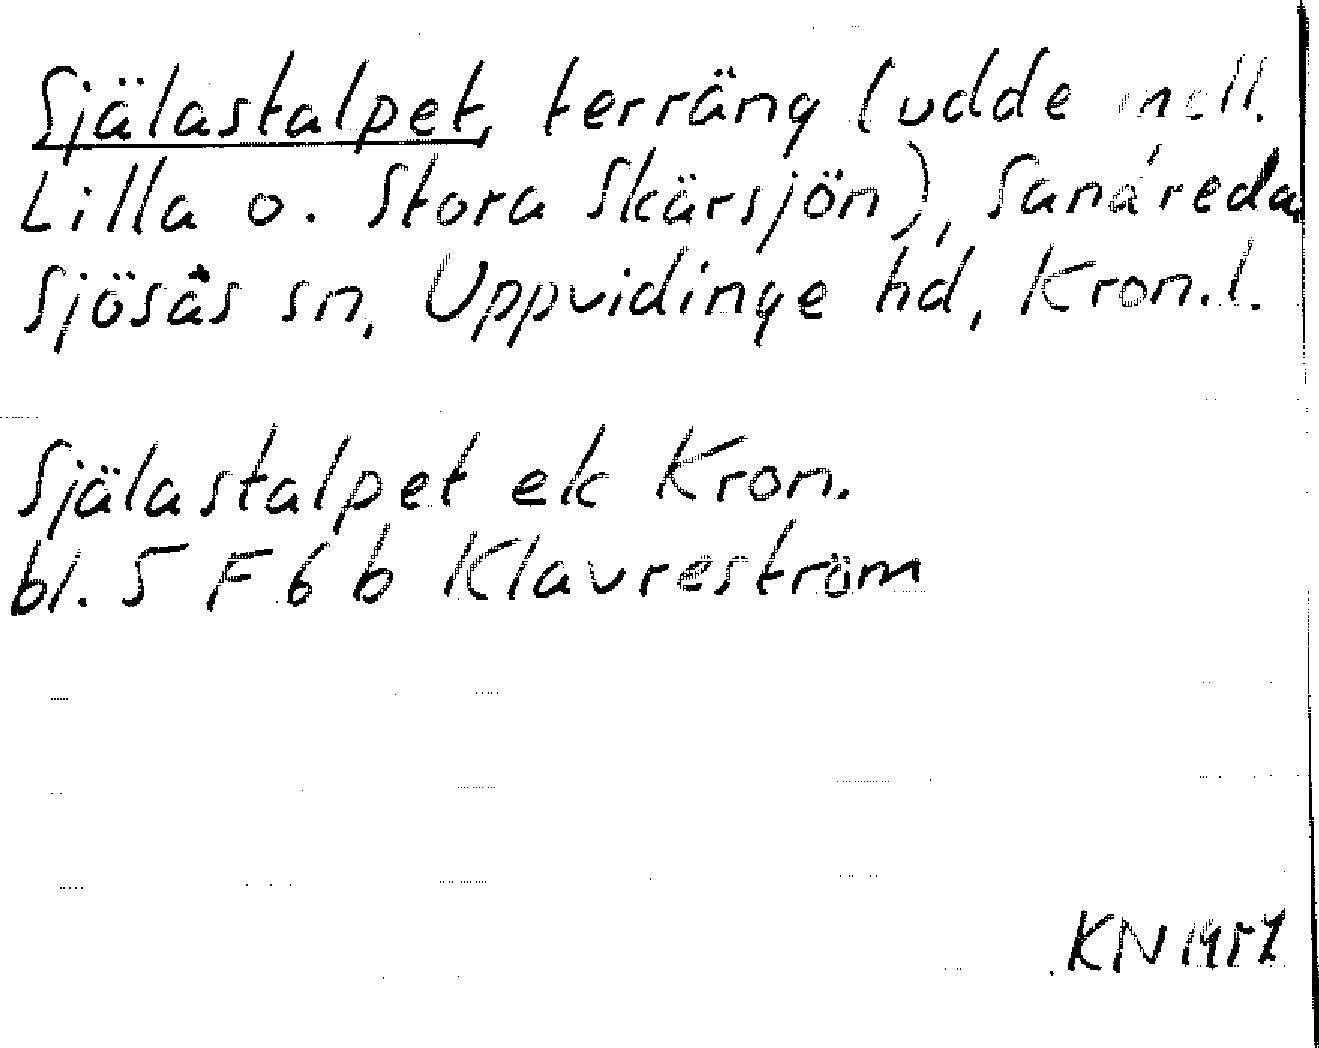 Själastalpet, terräng (udde mell.
Lilla o. Stora Skärsjön), Sanáreda,
Sjösås sn, Uppvidinge hd, Kron.l.
Själastalpet ek Kron.
bl. 5 F 6 b Klavreström
KN 1957